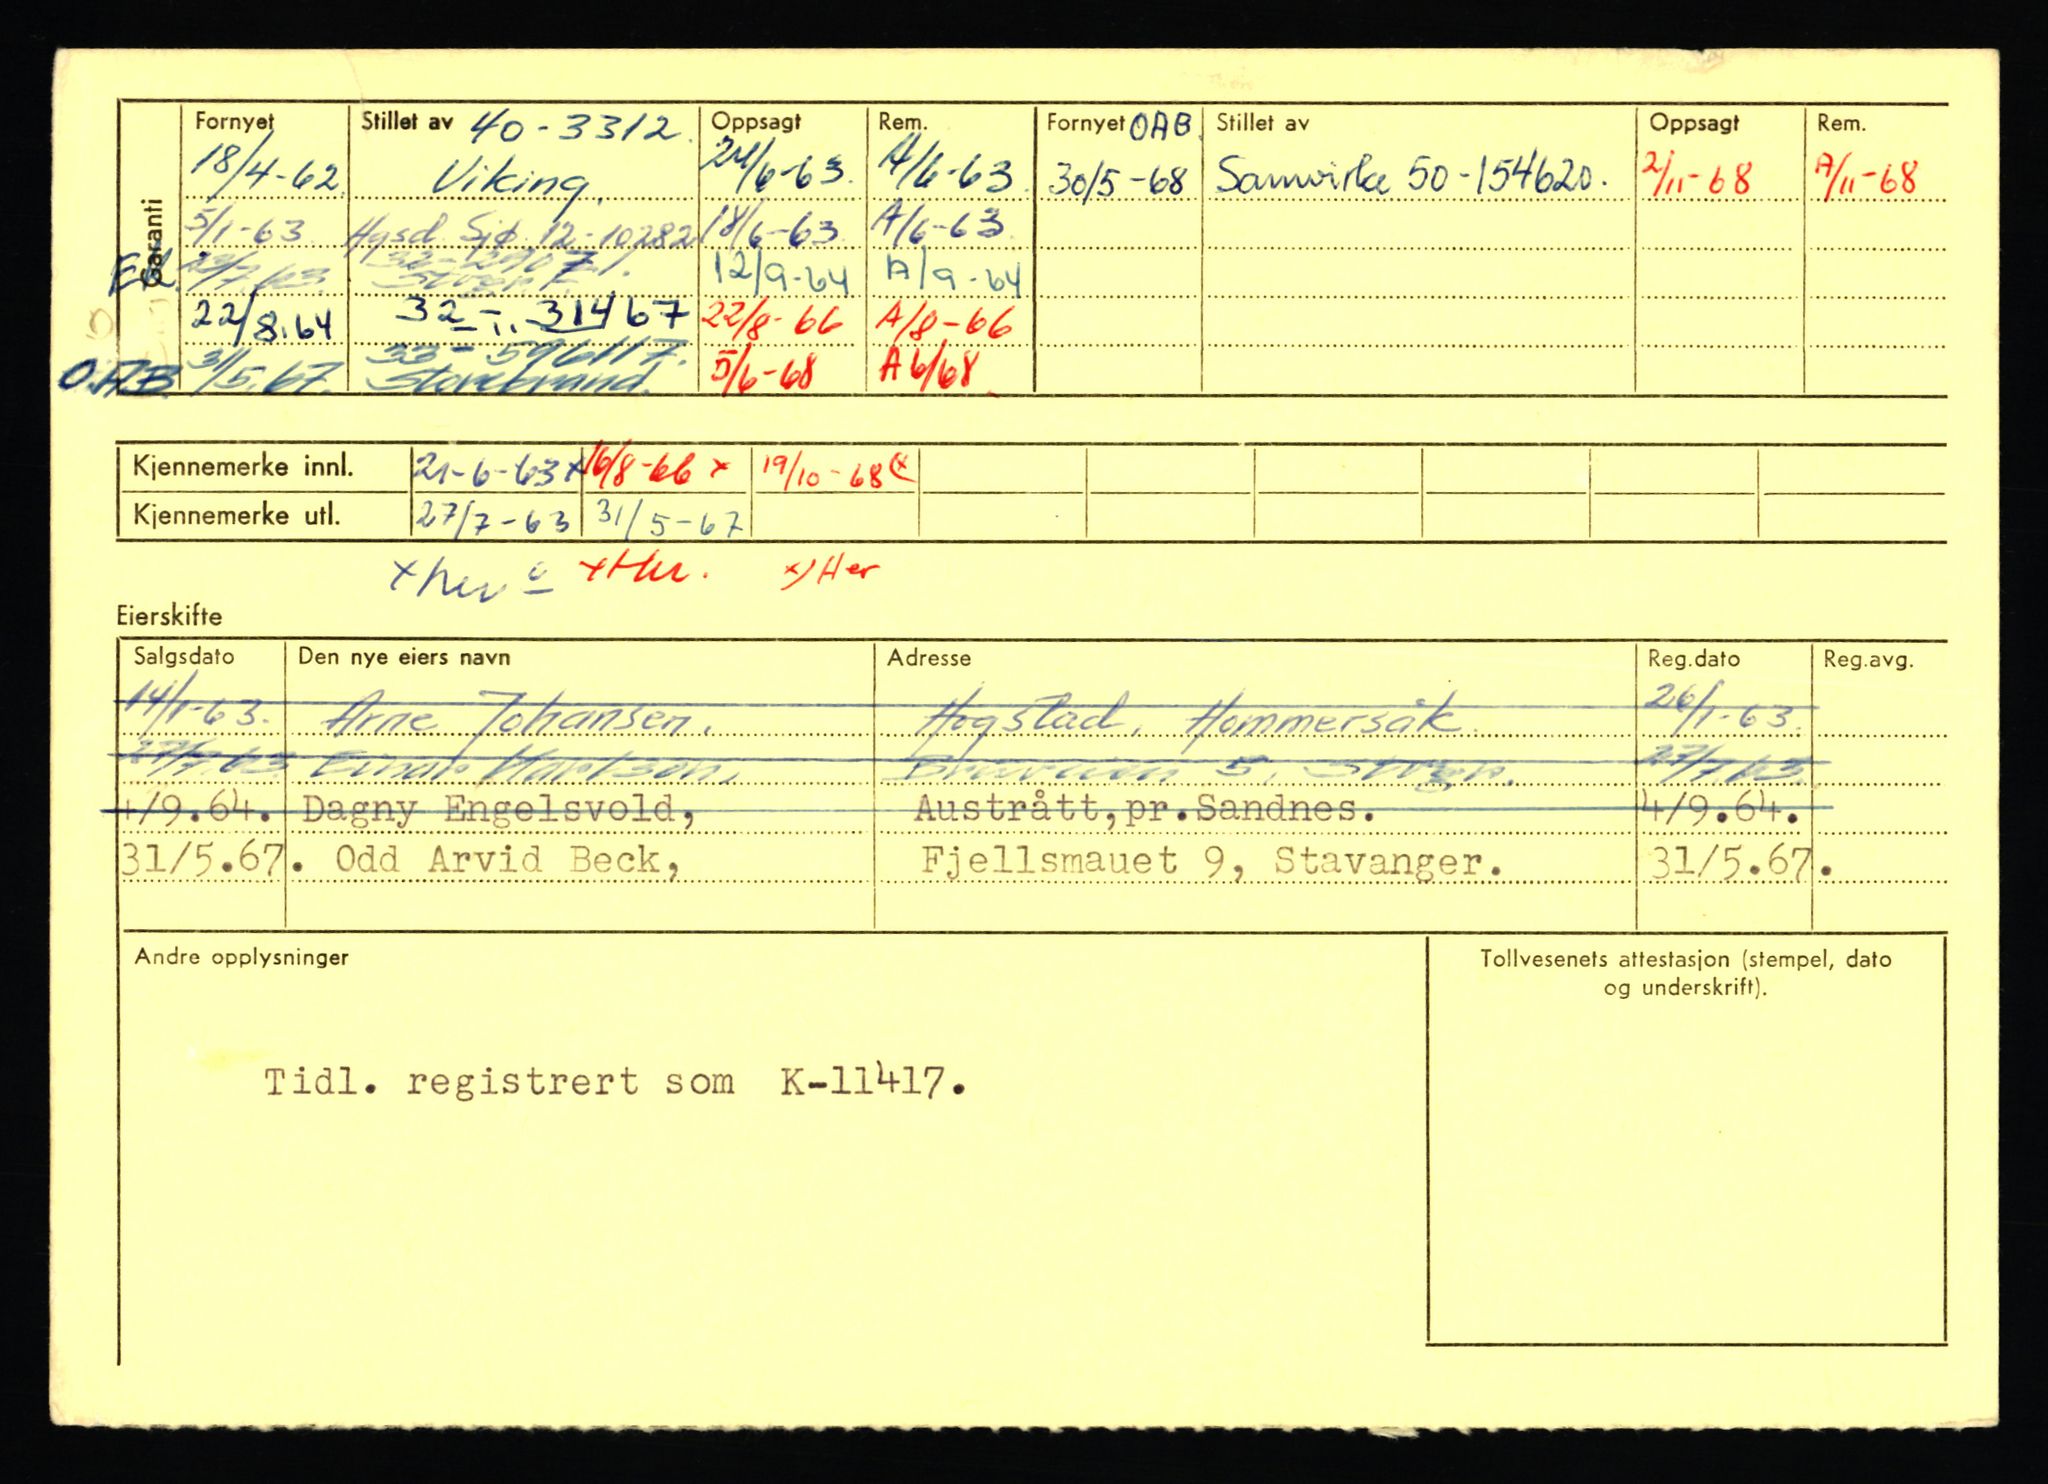 Garanti Fornyet Stillet av 40-3312. Oppsagt Rem. Fornyet OAB. Stillet av Oppsagt Rem.
18/4-62. Viking. 24/6-63. A/6-63. 30/5-68 Samvirke 50-154620. 2/11-68 A/11-68
5/1-63. Hgsd. Sjø. 12-10282 18/6-63. A/6-63.
12/9-64 A/9-64
22/8.64 32-"-31467 22/8-66 A/8-66
O.A.B. 31/5.67. 33-596117. Storebrand. 5/6-68 A 6/68
Kjennemerke innl. 21-6-63x 16/8-66 x 19/10-68 (x
Kjennemerke utl. 27/7-63 31/5-67
x her x Her. x) Her
Eierskifte
Salgsdato Den nye eiers navn Adresse Reg.dato Reg.avg.
14/1-63. Arne Johansen. Hogstad, Hommersåk. 26/1-63.
27/7.63 Einar 5, 27/7.63.
4/9.64. Dagny Engelsvold, Austrått,pr.Sandnes. 4/9.64.
31/5.67. Odd Arvid Beck, Fjellsmauet 9, Stavanger. 31/5.67.
Andre opplysninger
Tollvesenets attestasjon (stempel, dato
og underskrift).
Tidl. registrert som K-11417.